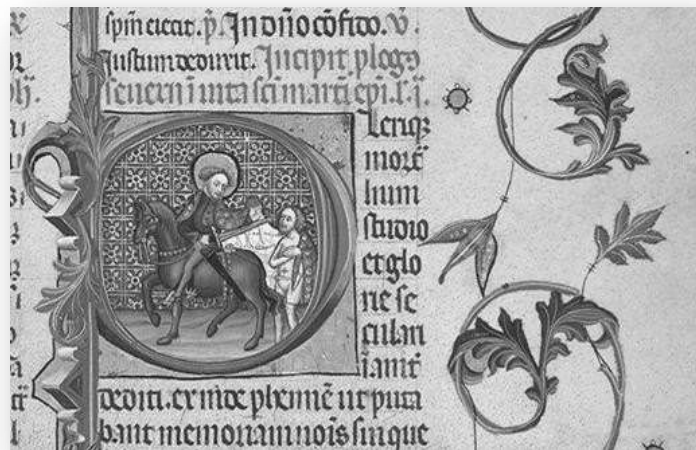 spm eiecit. p̄. In dn̄o cōfido. v̄.
Iustum deduxit. Incipit plogꝯ
seueri ī uita sci marti ep̄i. l. ī.
Leriqꝫ
mort̄
lium
studio
et glo
rie se
culari
īanit̄
dediti. ex inde phennē ut puta
bant memoriam noīs sui que